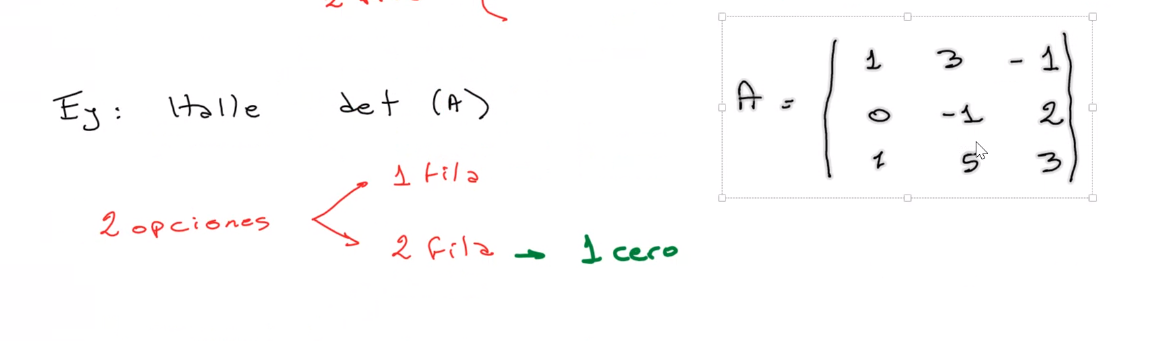 Ej: Halle det (A)
A = | 1 3 -1 |
| 0 -1 2 |
| 1 5 3 |
2 opciones
1 fila
2 fila → 1 cero